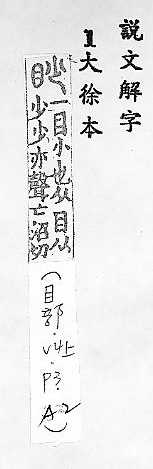 說文解字
1大徐本
眇
一目小也从目从
少少亦聲亡沼切
(目部.V4上.P3.A2)